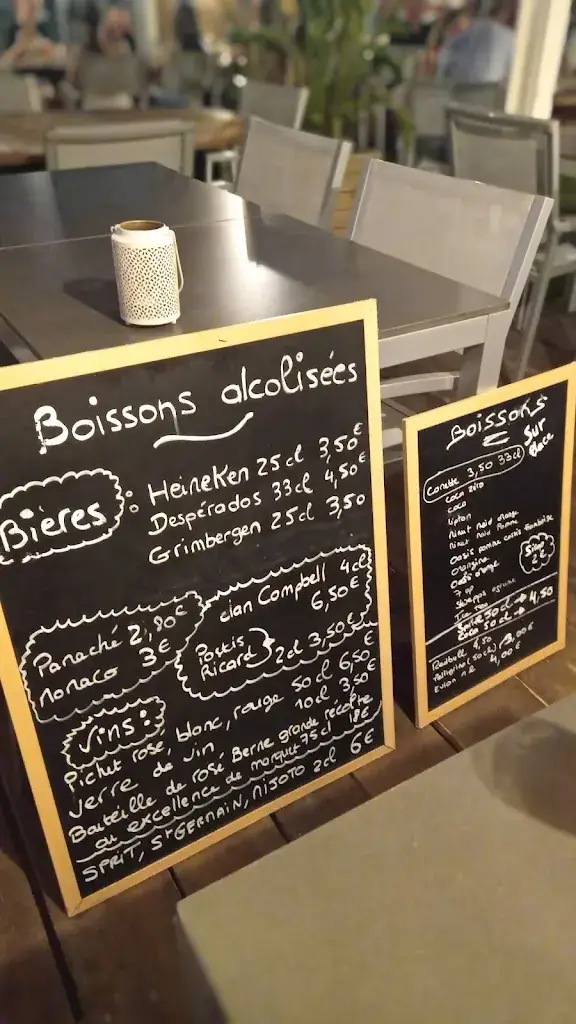 Boissons alcolisées
Bières :
Heineken 25cl 3,50€
Despérados 33cl 4,50€
Grimbergen 25cl 3,50
Panaché 2,80€
Monaco 3€
clan Campbell 4cl
6,50€
Pastis
Ricard 2cl 3,50€
Vins :
Pichet rosé, blanc, rouge 50cl 6,50€
Verre de vin, 10cl 3,50€
Bouteille de rosé Berne grande récolte
ou excellence de marquet 75cl 18€
SPRIT, St GERMAIN, MIJOTO 2cl 6€
Boissons
Sur
Place
Canette 3,50 33cl
coca zéro
coco
lipton
Oasis pomme cassis framboise
orangina
Oasis orange
7 up
Shweppes agrume
Sirop
2€
50cl → 4,50
Coca 50cl
Redbull 4,50
(50cl) 3,00€
Evian 1l 4,00€